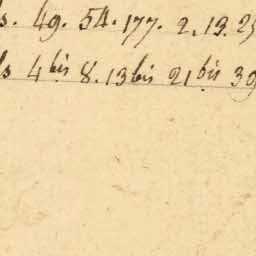 s. 49. 54. 177. 2. 19. 25
s 4 bis 8. 13 bis 21 bis 39